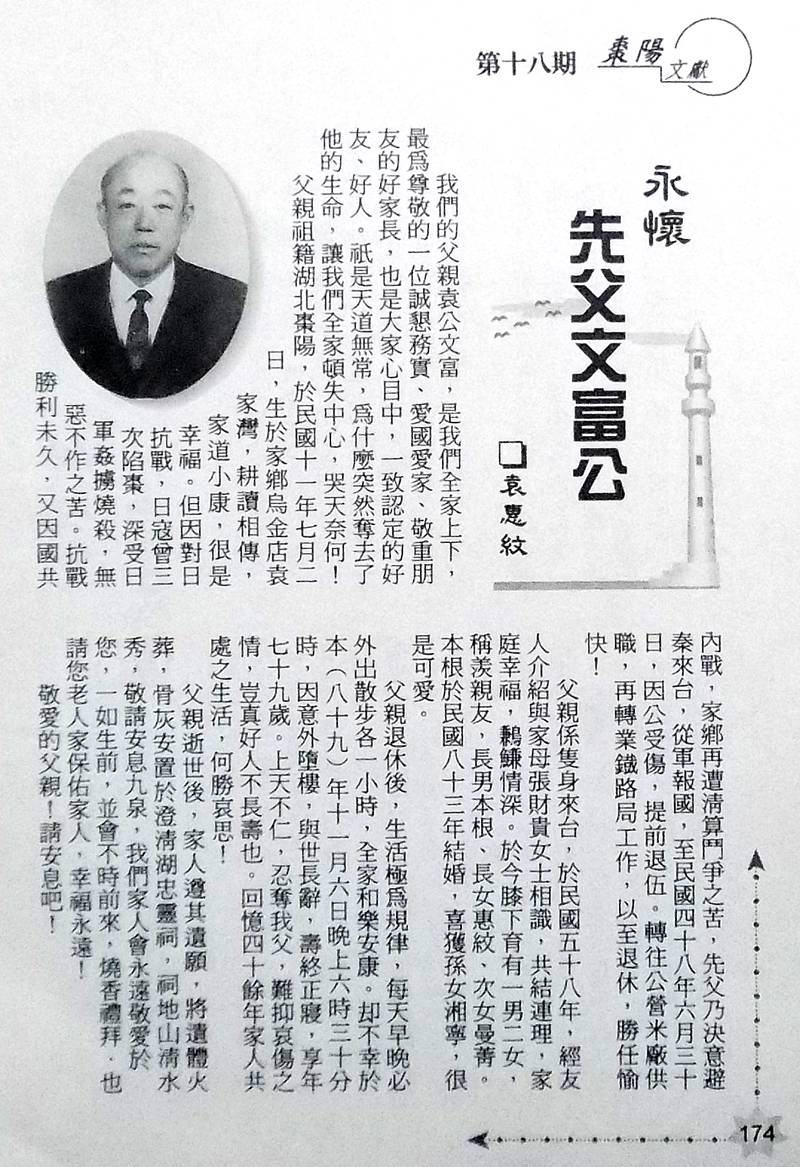 第十八期
棗陽
文獻
永懷
先父文富公
□袁惠紋
我們的父親袁公文富，是我們全家上下，
最為尊敬的一位誠懇務實、愛國愛家、敬重朋
友的好家長，也是大家心目中，一致認定的好
友、好人。祇是天道無常，為什麼突然奪去了
他的生命，讓我們全家頓失中心，哭天奈何！
父親祖籍湖北棗陽，於民國十一年七月二
日，生於家鄉烏金店袁
家灣，耕讀相傳，
家道小康，很是
幸福。但因對日
抗戰，日寇曾三
次陷棗，深受日
軍姦擄燒殺，無
惡不作之苦。抗戰
勝利未久，又因國共
內戰，家鄉再遭淸算鬥爭之苦，先父乃決意避
秦來台，從軍報國，至民國四十八年六月三十
日，因公受傷，提前退伍。轉往公營米廠供
職，再轉業鐵路局工作，以至退休，勝任愉
快！
父親係隻身來台，於民國五十八年，經友
人介紹與家母張財貴女士相識，共結連理，家
庭幸福，鶼鰜情深。於今膝下育有一男二女，
稱羨親友，長男本根、長女惠紋、次女曼菁。
本根於民國八十三年結婚，喜獲孫女湘寧，很
是可愛。
父親退休後，生活極為規律，每天早晚必
外出散步各一小時，全家和樂安康。却不幸於
本（八十九）年十一月六日晚上六時三十分
時，因意外墮樓，與世長辭，壽終正寢，享年
七十九歲。上天不仁，忍奪我父，難抑哀傷之
情，豈真好人不長壽也。回憶四十餘年家人共
處之生活，何勝哀思！
父親逝世後，家人遵其遺願，將遺體火
葬，骨灰安置於澄淸湖忠靈祠，祠地山淸水
秀，敬請安息九泉，我們家人會永遠敬愛於
您，一如生前，並會不時前來，燒香禮拜．也
請您老人家保佑家人，幸福永遠！
敬愛的父親！請安息吧！
174